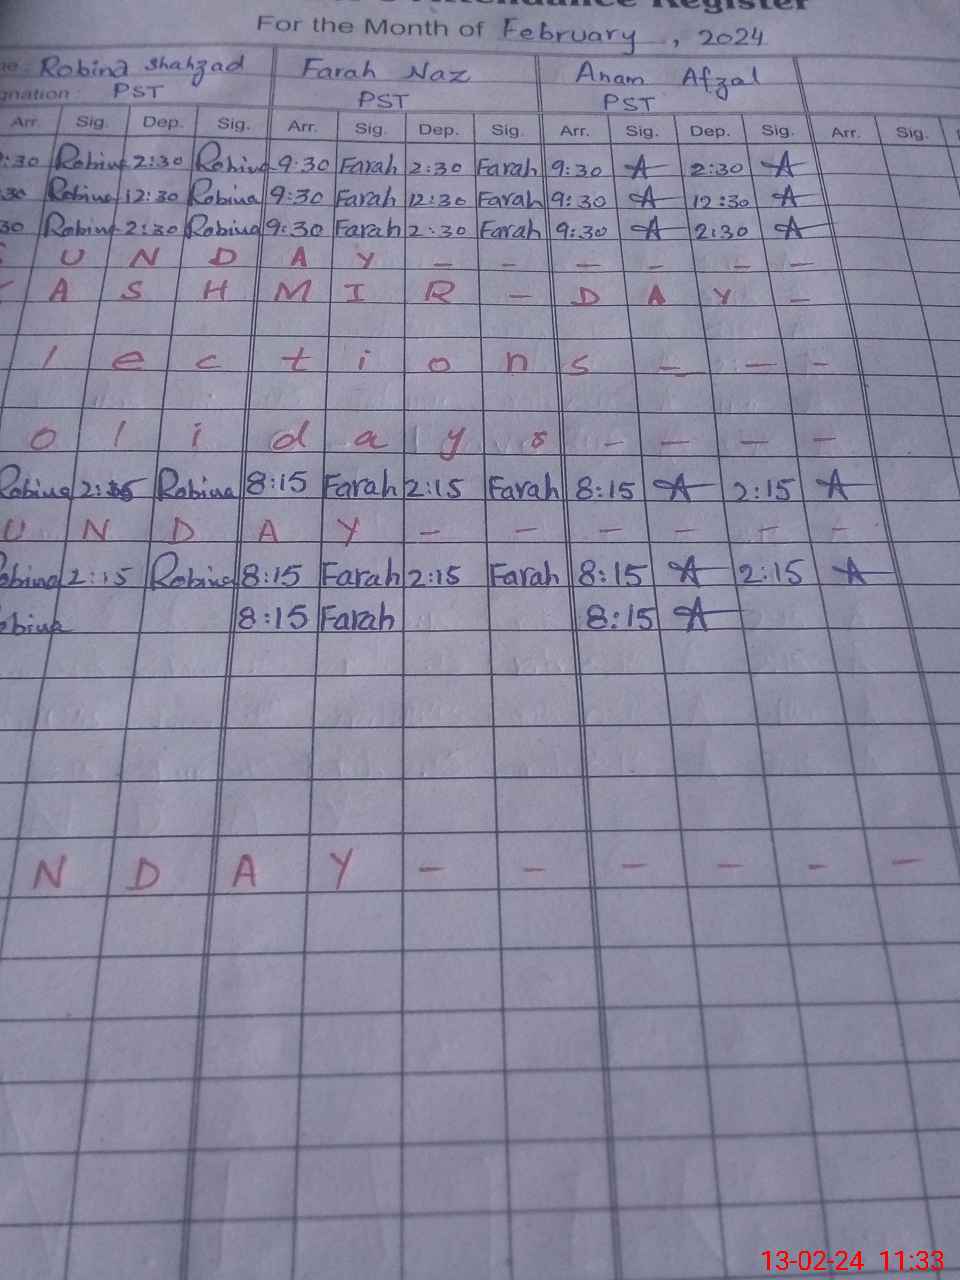 Attendance Register
For the Month of February, 2024
Robina Shahzad Farah Naz Anam Afzal
PST PST PST
Arr. Sig. Dep. Sig. Arr. Sig. Dep. Sig. Arr. Sig. Dep. Sig. Arr. Sig.
:30 Robina 2:30 Robina 9:30 Farah 2:30 Farah 9:30 A 2:30 A
30 Robina 12:30 Robina 9:30 Farah 12:30 Farah 9:30 A 12:30 A
30 Robina 2:30 Robina 9:30 Farah 2:30 Farah 9:30 A 2:30 A
U N D A Y - - - - - -
A S H M I R - D A Y -
l e c t i o n s - - -
o l i d a y s - - - -
Robina 2:15 Robina 8:15 Farah 2:15 Farah 8:15 A 2:15 A
U N D A Y - - - - - -
obina 2:15 Robina 8:15 Farah 2:15 Farah 8:15 A 2:15 A
obina 8:15 Farah 8:15 A
N D A Y - - - - - -
13-02-24 11:33